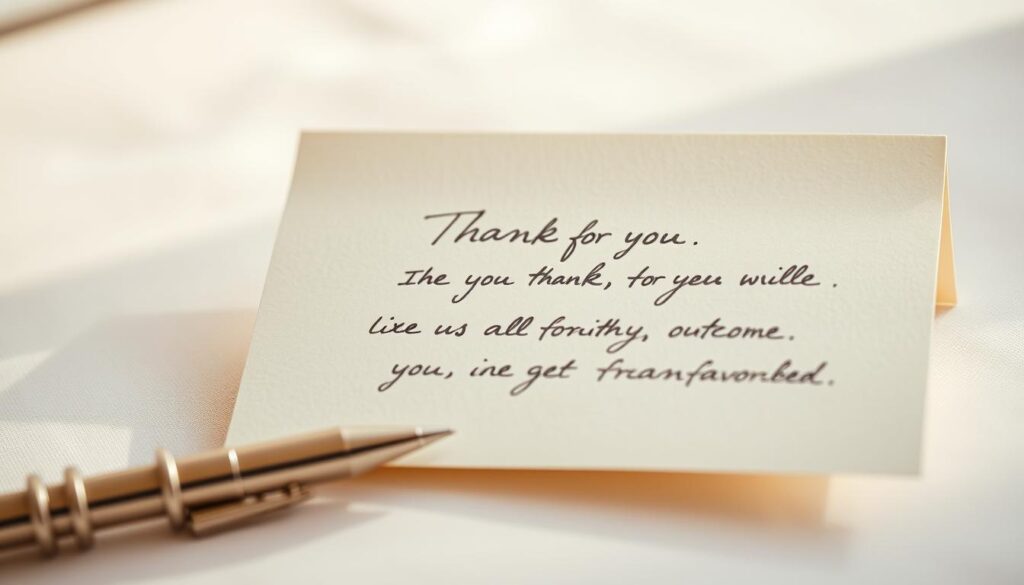 Thank for you.
Ihe you thank, tor yeu wuille.
lixe us all forithy, outcome.
you, ine get franfavorbed.